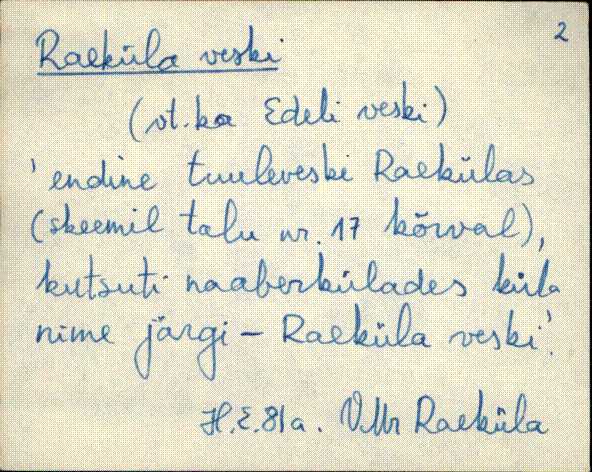 2
Raeküla veski
(vt. ka Edeli veski)
'endine tuuleveski Raekülas
(skeemil talu nr. 17 kõrval),
kutsuti naaberkülades küla
nime järgi – Raeküla veski'.
H.E. 81 a. VMr Raeküla